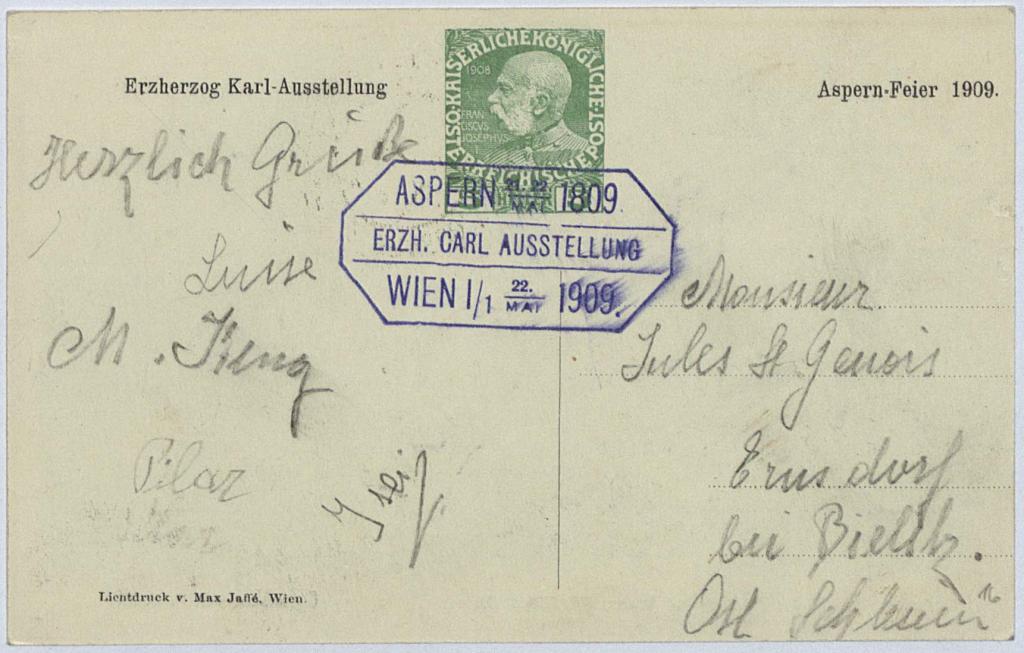 Erzherzog Karl-Ausstellung
Aspern-Feier 1909.
KAISERLICHE KÖNIGLICHE ÖSTERREICHISCHE POST
1908
FRAN
CISCVS
IOSEPHVS
ASPERN 21. 22. MAI 1809.
ERZH. CARL AUSSTELLUNG
WIEN I/1 22. MAI 1909.
Herzlich Grüße
Luise
M.
Pilar
Monsieur
Jules St Genois
Ernsdorf
bei Bielitz.
Ost Schlesien
Lichtdruck v. Max Jaffé, Wien.